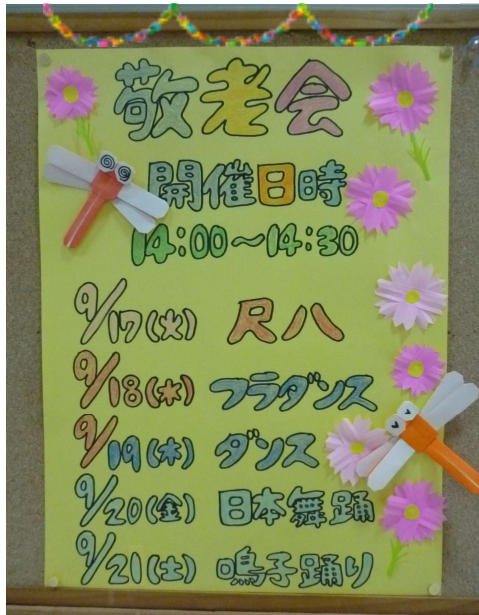 敬老会
開催日時
14:00～14:30
9/17(火) 尺八
9/18(水) フラダンス
9/19(木) ダンス
9/20(金) 日本舞踊
9/21(土) 鳴子踊り